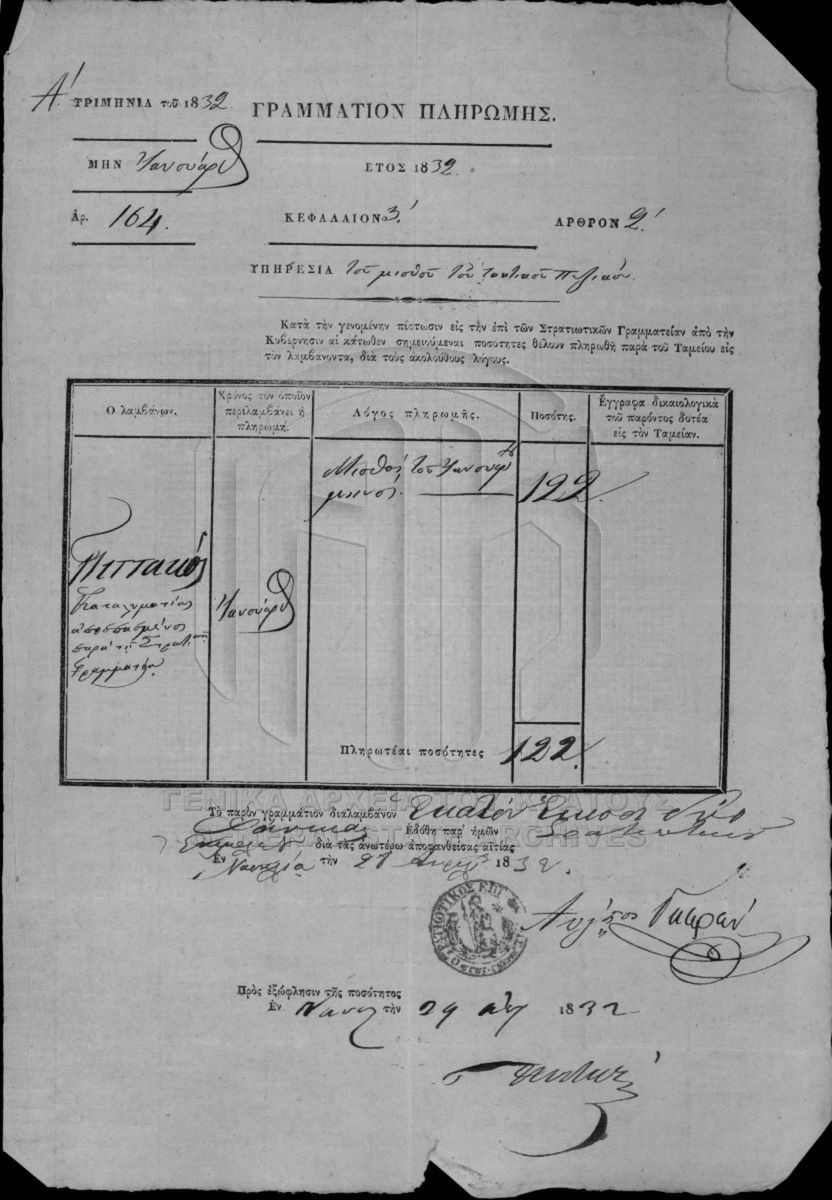 Α΄. ΤΡΙΜΗΝΙΑ τοῦ 1832. ΓΡΑΜΜΑΤΙΟΝ ΠΛΗΡΩΜΗΣ.
ΜΗΝ Ἰανουάρ ΕΤΟΣ 1832.
Ἀρ. 164. ΚΕΦΑΛΑΙΟΝ 3.΄ ΑΡΘΡΟΝ 2΄
ΥΠΗΡΕΣΙΑ τοῦ μισθοῦ τοῦ τακτικοῦ Πεζικοῦ.
Κατὰ τὴν γενομένην πίστωσιν εἰς τὴν ἐπὶ τῶν Στρατιωτικῶν Γραμματείαν ἀπὸ τὴν
Κυβέρνησιν αἱ κάτωθεν σημειούμεναι ποσότητες θέλουν πληρωθῆ παρὰ τοῦ Ταμείου εἰς
τὸν λαμβάνοντα, διὰ τοὺς ἀκολούθους λόγους.
Ὁ λαμβάνων.
Χρόνος τὸν ὁποῖον
περιλαμβάνει ἡ
πληρωμή.
Λόγος πληρωμῆς.
Ποσότης.
Ἔγγραφα δικαιολογικὰ
τοῦ παρόντος δοτέα
εἰς τὸν Ταμείαν.
Μισθὸς τοῦ Ἰανουαρ
μηνός.
122
Πιττακὸς
Καταλυματίας
ἀποσπασμένος
παρὰ τῇ Στρατ
Γραμματεία.
Ἰανουάρ
Πληρωτέαι ποσότητες 122
ΓΕΝΙΚΑ ΑΡΧΕΙΑ ΤΟΥ ΚΡΑΤΟΥΣ
Τὸ παρὸν γραμμάτιον διαλαμβάνον Ἑκατὸν Εἴκοσι δύο
Φοίνικας Ἐδόθη παρ' ἡμῶν
διὰ τὰς ἀνωτέρω ἀποφανθείσας αἰτίας
Ἐν Ναυπλίᾳ τὴν 28 Ἀπριλ 1832.
Πρὸς ἐξώφλησιν τῆς ποσότητος
Ἐν Ναυπλ τὴν 29 1832